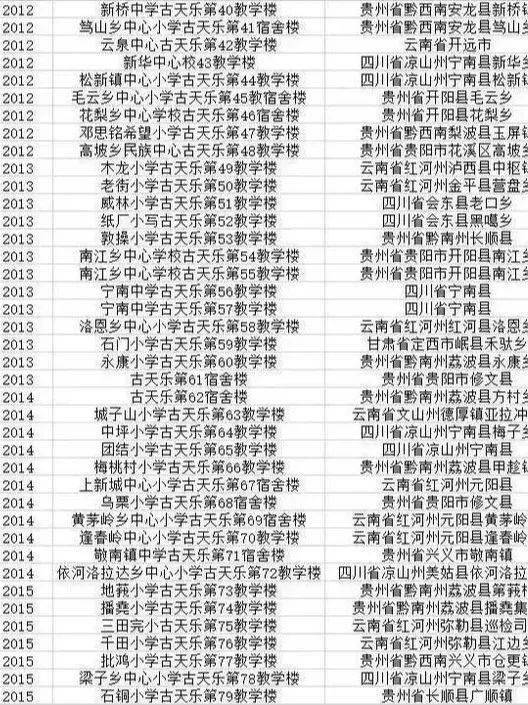 2012 新桥中学古天乐第40教学楼 贵州省黔西南安龙县新桥镇
2012 笃山乡中心小学古天乐第41宿舍楼 贵州省黔西南安龙县笃山
2012 云泉中心古天乐第42教学楼 云南省开远市
2012 新华中心校43教学楼 四川省凉山州宁南县新华乡
2012 松新镇中心小学古天乐第44教学楼 四川省凉山州宁南县松新镇
2012 毛云乡中心小学古天乐第45教宿舍楼 贵州省开阳县毛云乡
2012 花梨乡中心学校古天乐第46宿舍楼 贵州省开阳县花梨乡
2012 邓思铭希望小学古天乐第47教学楼 贵州省黔西南梨波县玉屏镇
2012 高坡乡民族中心古天乐第48教学楼 贵州省贵阳市花溪区高坡乡
2013 木龙小学古天乐第49教学楼 云南省红河州泸西县中枢镇
2013 老街小学古天乐第50教学楼 云南省红河州金平县营盘乡
2013 威林小学古天乐第51教学楼 四川省会东县老口乡
2013 纸厂小写古天乐第52教学楼 四川省会东县黑嘎乡
2013 敦操小学古天乐第53教学楼 贵州省黔南州长顺县
2013 南江乡中心学校古天乐第54教学楼 贵州省贵阳市开阳县南江乡
2013 南江乡中心学校古天乐第55教学楼 贵州省贵阳市开阳县南江乡
2013 宁南中学古天乐第56教学楼 四川省宁南县
2013 宁南中学古天乐第57教学楼 四川省宁南县
2013 洛恩乡中心小学古天乐第58教学楼 云南省红河州红河县洛恩乡
2013 石门小学古天乐第59教学楼 甘肃省定西市岷县禾驮乡
2013 永康小学古天乐第60教学楼 贵州省黔南州荔波县永康乡
2013 古天乐第61宿舍楼 贵州省贵阳市修文县
2014 古天乐第62宿舍楼 贵州省黔南州荔波县方村乡
2014 城子山小学古天乐第63教学楼 云南省文山州德厚镇亚拉冲
2014 中坪小学古天乐第64教学楼 四川省凉山州宁南县梅子乡
2014 团结小学古天乐第65教学楼 四川省凉山州宁南县
2014 梅桃村小学古天乐第66教学楼 贵州省黔南州荔波县甲
2014 上新城中心古天乐第67宿舍楼 云南省红河州元阳县
2014 乌栗小学古天乐第68宿舍楼 贵州省贵阳市修文县
2014 黄茅岭乡中心小学古天乐第69宿舍楼 云南省红河州元阳县黄茅岭
2014 逢春岭中心小学古天乐第70教学楼 云南省红河州元阳县逢春岭
2014 敬南镇中学古天乐第71宿舍楼 贵州省兴义市敬南镇
2014 依河洛拉达乡中心小学古天乐第72教学楼 四川省凉山州美姑县依河洛拉
2015 地莪小学古天乐第73教学楼 贵州省黔南州荔波县第莪村
2015 播尧小学古天乐第74教学楼 贵州省黔南州荔波县播尧集
2015 三田完小古天乐第75教学楼 云南省红河州弥勒县巡检司
2015 千田小学古天乐第76教学楼 云南省红河州弥勒县江边乡
2015 批鸿小学古天乐第77教学楼 贵州省黔西南兴义市仓更镇
2015 梁子乡中心小学古天乐第78教学楼 四川省凉山州宁南县梁子乡
2015 石铜小学古天乐第79教学楼 贵州省长顺县广顺镇